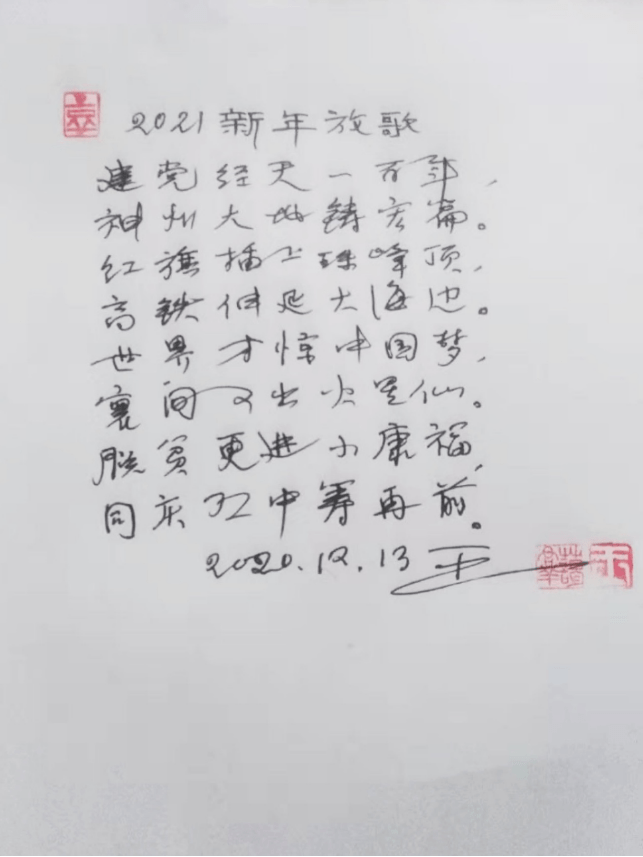 2021新年放歌
建党经天一百年,
神州大地铸宏篇。
红旗插上珠峰顶,
高铁伸延大海边。
世界才惊中国梦,
寰间又出火星仙。
脱贫更进小康福,
同庆中筹再前。
2020.12.13